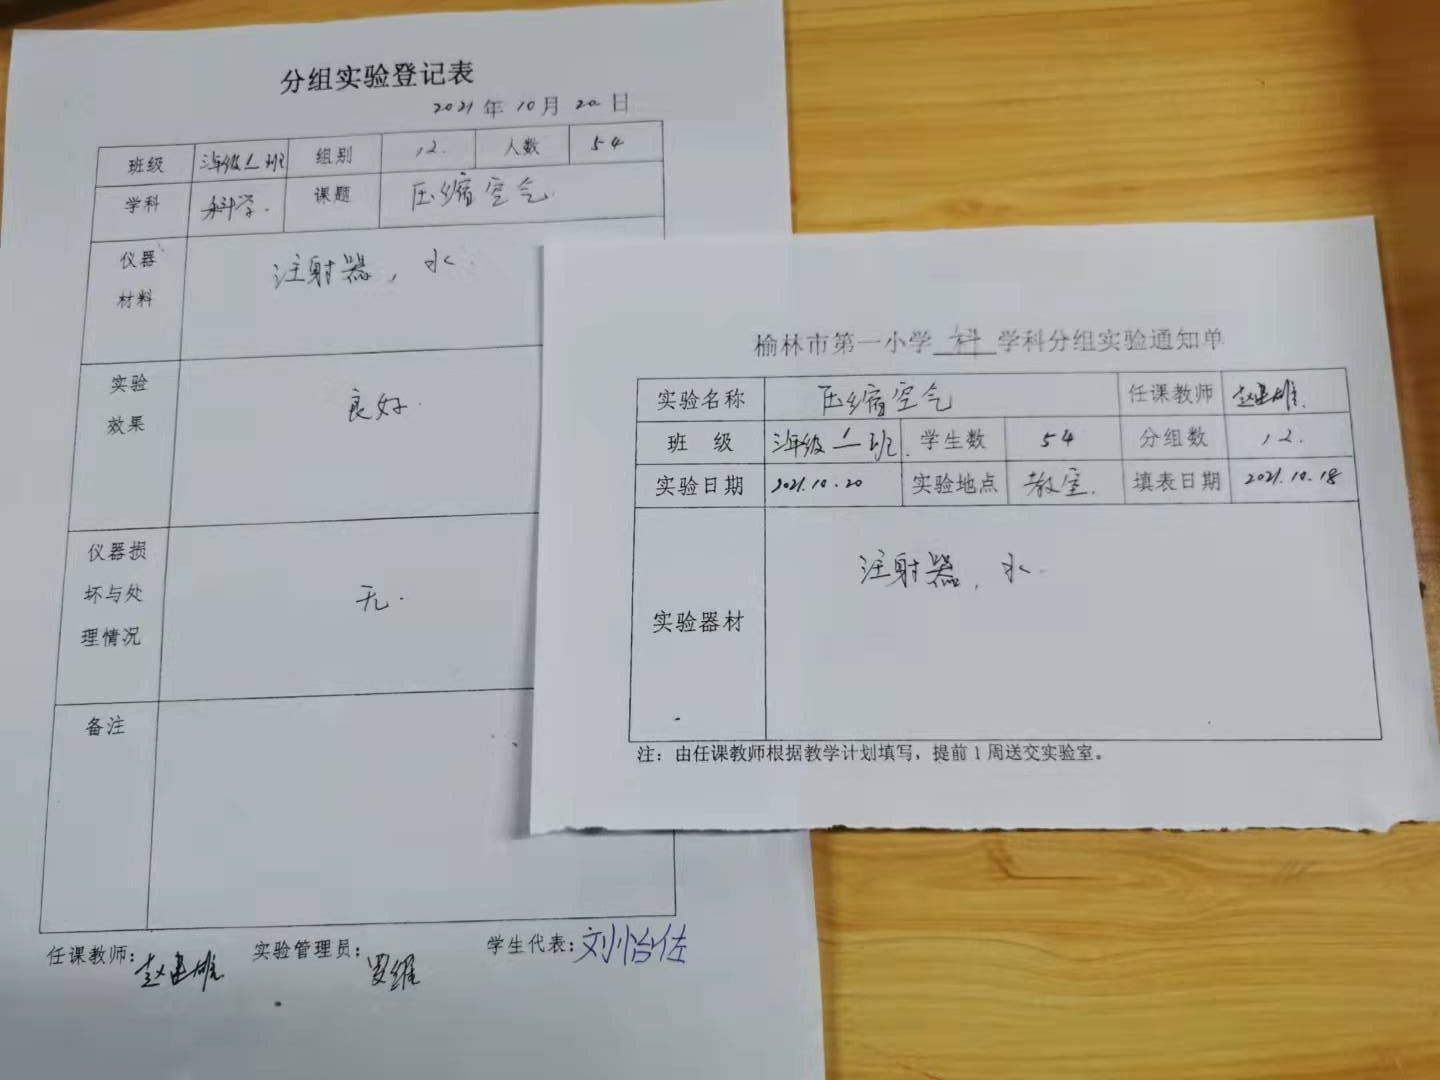 分组实验登记表
2021年10月20日
班级 三年级1班 组别 12. 人数 54
学科 科学. 课题 压缩空气.
仪器材料 注射器, 水.
实验效果 良好.
仪器损坏与处理情况 无.
备注
任课教师: 赵建雄 实验管理员: 罗维 学生代表: 刘怡佐
榆林市第一小学 科 学科分组实验通知单
实验名称 压缩空气 任课教师 赵建雄.
班 级 三年级1班. 学生数 54 分组数 12.
实验日期 2021.10.20 实验地点 教室. 填表日期 2021.10.18
实验器材 注射器, 水.
注：由任课教师根据教学计划填写，提前1周送交实验室。